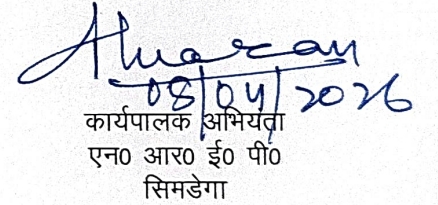 08/04/2026
कार्यपालक अभियंता
एन0 आर0 ई0 पी0
सिमडेगा